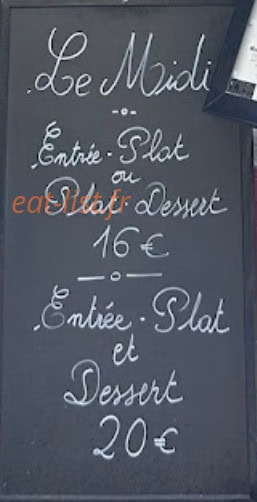 Le Midi
Entrée - Plat
ou
Plat - Dessert
eat-list.fr
16 €
Entrée - Plat
et
Dessert
20 €